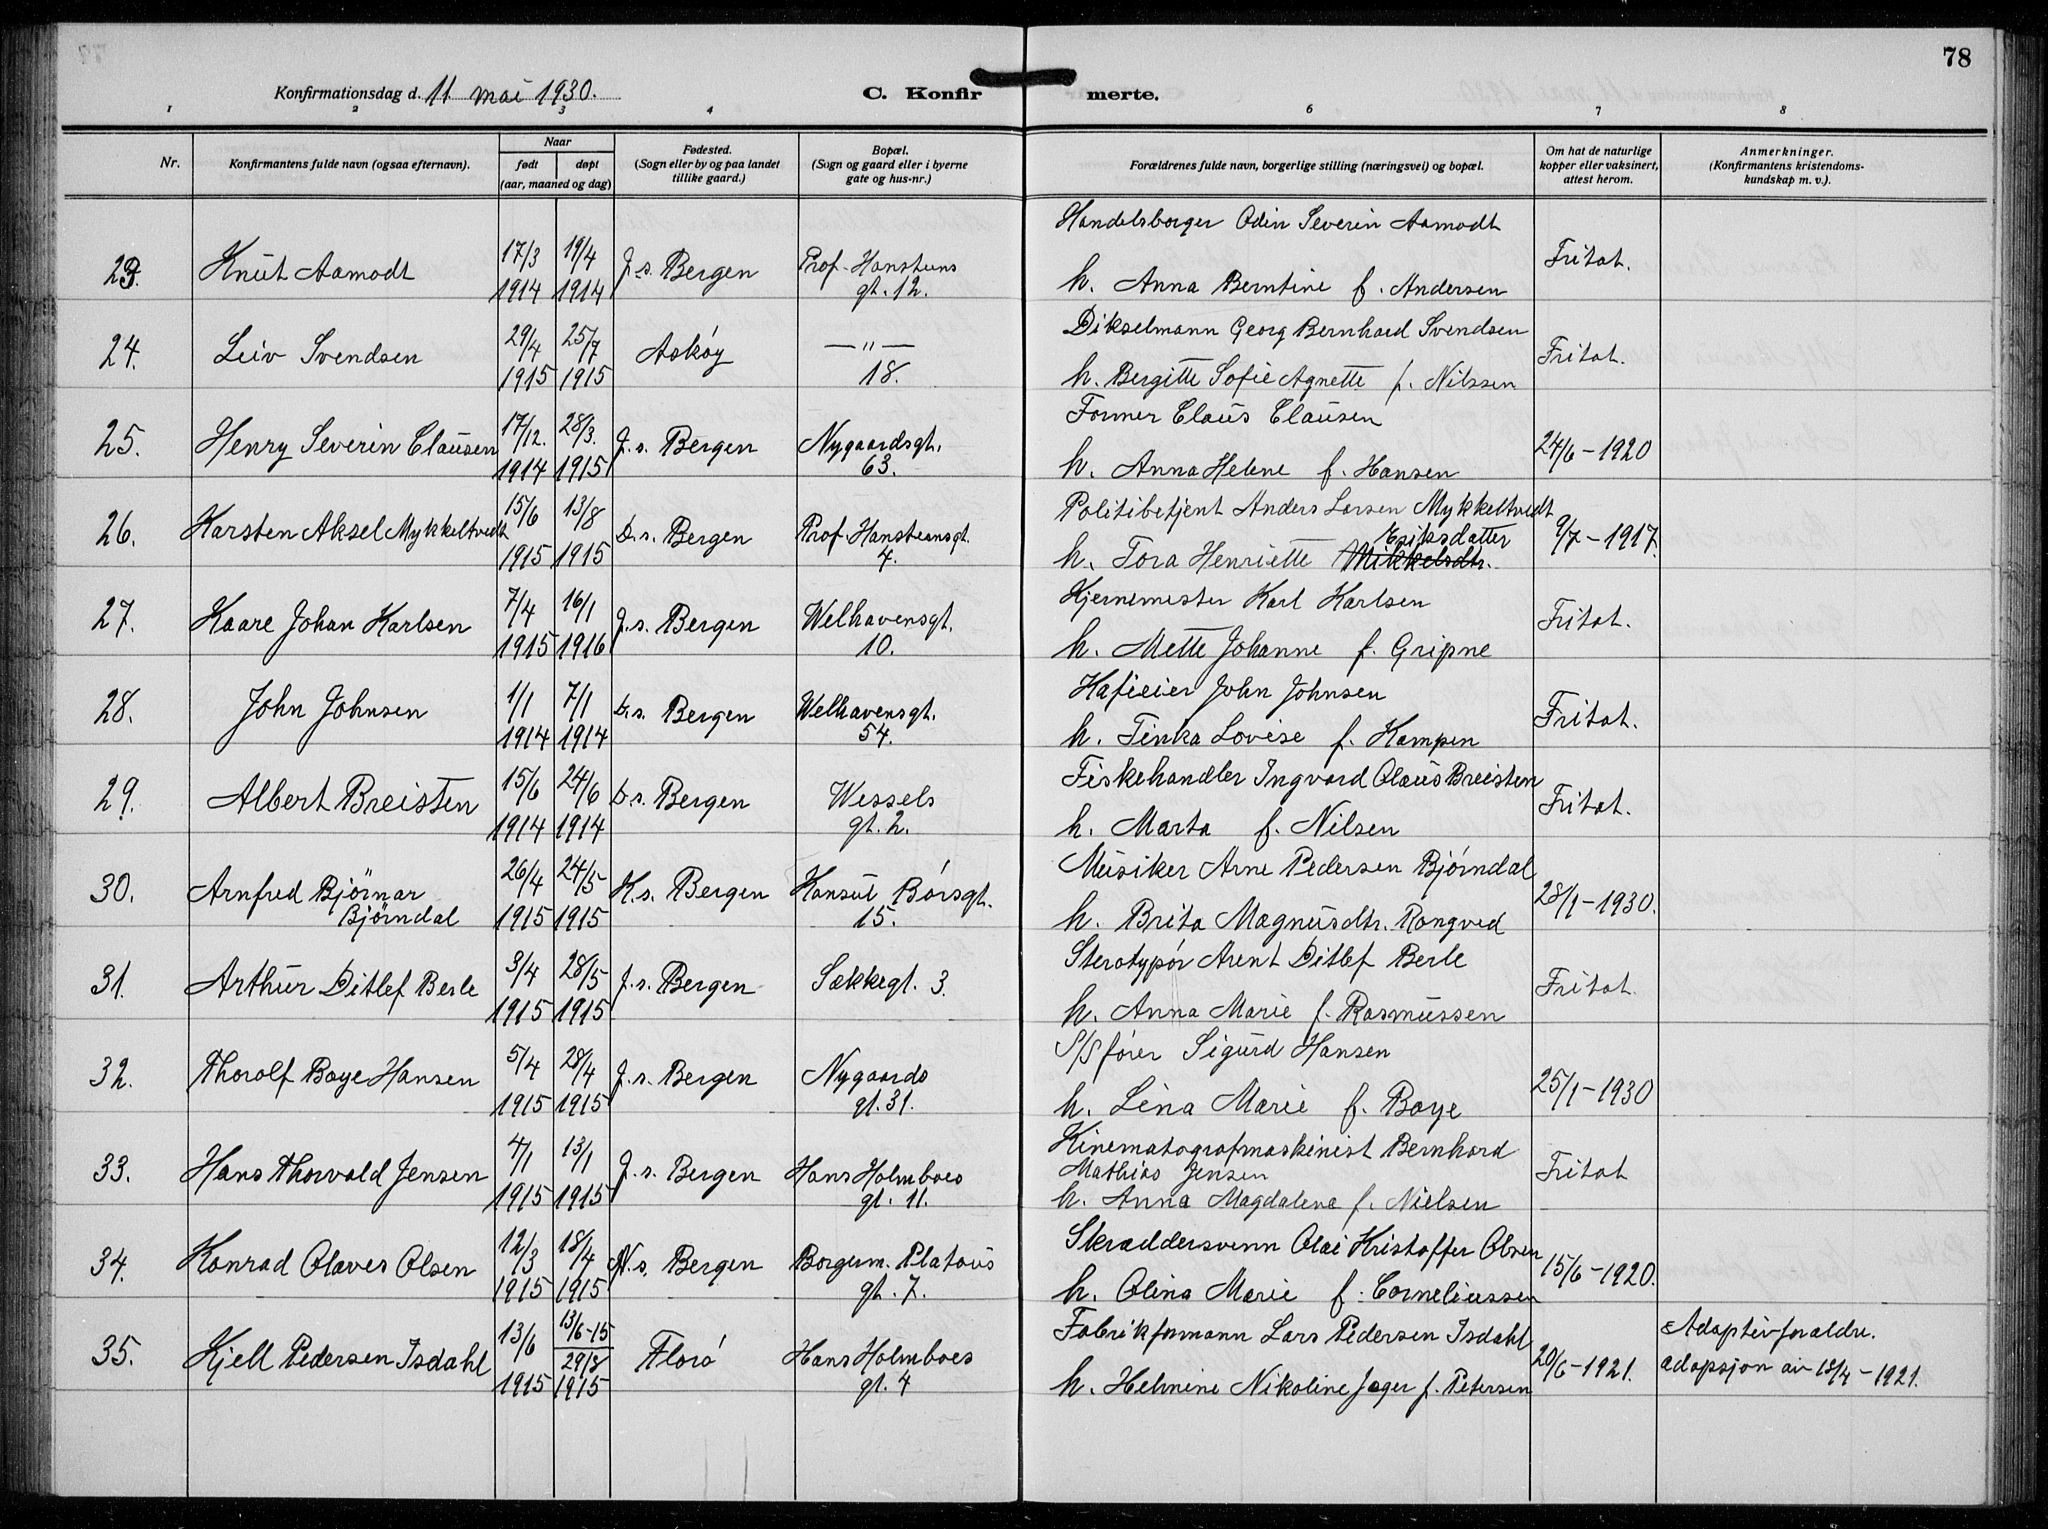 78
Konfirmationsdag d. 11. mai 1930.
C. Konfirmerte.
1 2 3 4 6 7 8
Nr.
Konfirmantens fulde navn (ogsaa efternavn).
Naar
født
døpt
(aar, maaned og dag)
Fødested.
(Sogn eller by og paa landet
tillike gaard.)
Bopæl.
(Sogn og gaard eller i byerne
gate og hus-nr.)
Forældrenes fulde navn, borgerlige stilling (næringsvei) og bopæl.
Om hat de naturlige
kopper eller vaksinert,
attest herom.
Anmerkninger.
(Konfirmantens kristendoms-
kundskap m. v.).
Handelsborger Odin Severin Aamodt
23. Knut Aamodt 17/3 19/4 J.s. Bergen Prof. Hansteens Fritat.
1914 1914 gt. 12. h. Anna Berntine f. Andersen
24. Leiv Svendsen 29/4 25/7 Askøy —"— Dikselmann Georg Bernhard Svendsen Fritat.
1915 1915 18. h. Bergitte Sofie Agnette f. Nilssen
Former Claus Clausen
25. Henry Severin Clausen 17/12. 28/3. J.s. Bergen Nygaardsgt. 24/6-1920
1914 1915 63. h. Anna Helene f. Hansen
Politibetjent Anders Larsen Mykkeltvedt
26. Karsten Aksel Mykkeltvedt 15/6 13/8 D.s. Bergen Prof. Hansteensgt. Eriksdatter 9/7-1917.
1915 1915 4. h. Tora Henriette Mikkelsdtr.
Kjernemester Karl Karlsen
27. Kaare Johan Karlsen 7/4 16/1 J.s. Bergen Welhavensgt. Fritat.
1915 1916 10. h. Mette Johanne f. Gripne
Kafeeier John Johnsen
28. John Johnsen 1/1 7/1 D.s. Bergen Welhavensgt. Fritat.
1914 1914 54. h. Tinka Lovise f. Kampen
Fiskehandler Ingvard Olaus Breisten
29. Albert Breisten 15/6 24/6 D.s. Bergen Wessels Fritat.
1914 1914 gt. 2. h. Marta f. Nilsen
Musiker Arne Pedersen Bjørndal
30. Arnfred Bjørnar 26/4 24/5 K.s. Bergen Konsul Børsgt. 28/1-1930.
Bjørndal 1915 1915 15. h. Brita Magnusdtr. Rongved
Sterotypør Arent Ditlef Berle
31. Arthur Ditlef Berle 3/4 28/5 J.s. Bergen Sækkegt. 3. Fritat.
1915 1915 h. Anna Marie f. Rasmussen
S/S fører Sigurd Hansen
32. Thorolf Boye Hansen 5/4 28/4 J.s. Bergen Nygaards 25/1-1930
1915 1915 gt. 31. h. Lina Marie f. Boye
Kinematografmaskinist Bernhard
33. Hans Thorvald Jensen 4/1 13/1 J.s. Bergen Hans Holmboes Mathias Jensen Fritat
1915 1915 gt. 11. h. Anna Magdalene f. Nielsen
Skræddersvenn Olai Kristoffer Olsen
34. Konrad Olaves Olsen 12/3 18/4 N.s. Bergen Borgerm. Platous 15/6-1920.
1915 1915 gt. 7. h. Olina Marie f. Corneliussen
Fabrikformann Lars Pedersen Isdahl Adoptivforældre.
35. Kjell Pedersen Isdahl 13/6 13/6-15 Florø Hans Holmboes 20/6-1921. adopsjon av 18/4-1921.
1915 29/8 1915 gt. 4 h. Helmine Nikoline Jæger f. Petersen